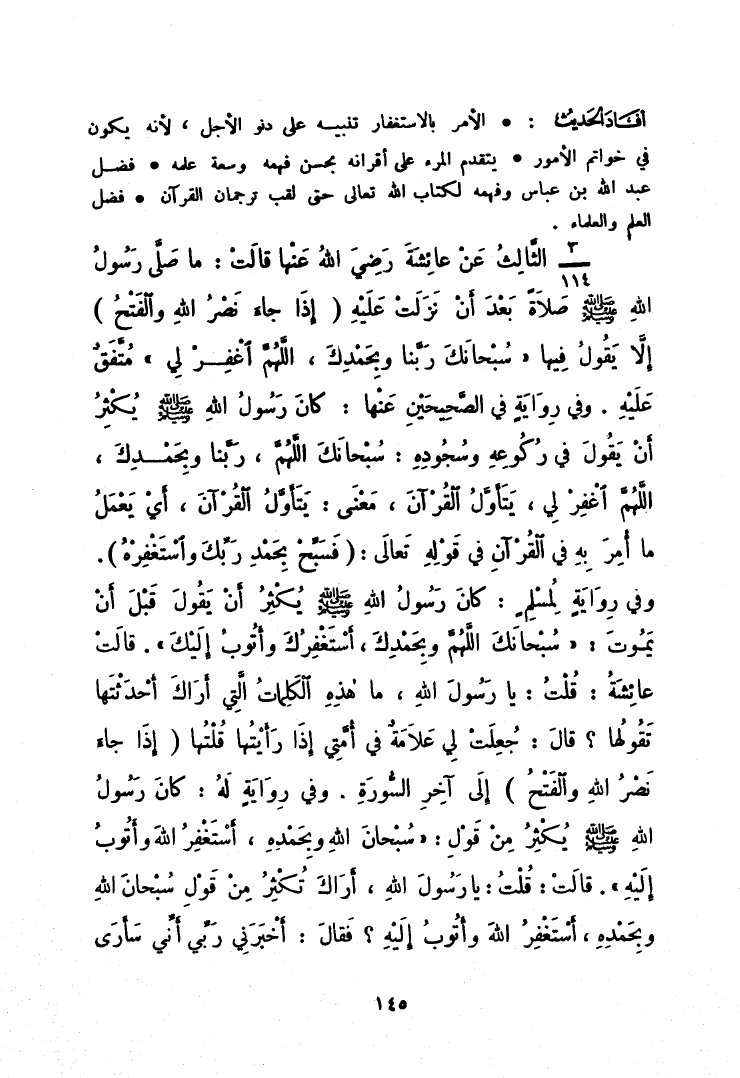 أفاد الحديث : • الأمر بالاستغفار تنبيه على دنو الأجل ، لأنه يكون
في خواتم الأمور • يتقدم المرء على أقرانه بحسن فهمه وسعة علمه • فضل
عبد الله بن عباس وفهمه لكتاب الله تعالى حتى لقب ترجمان القرآن • فضل
العلم والعلماء .
٣
١١٤
الثَّالِثُ عَنْ عائِشَةَ رَضِيَ اللهُ عَنْها قالَتْ : ما صَلَّى رَسُولُ
اللهِ ﷺ صَلاَةً بَعْدَ أَنْ نَزَلَتْ عَلَيْهِ ( إِذَا جاءَ نَصْرُ اللهِ وٱلْفَتْحُ )
إِلَّا يَقُولُ فِيها « سُبْحانَكَ رَبَّنا وبِحَمْدِكَ ، اللَّهُمَّ ٱغْفِرْ لي » مُتَّفَقٌ
عَلَيْهِ . وفي رِوايَةٍ في الصَّحِيحَيْنِ عَنْها : كانَ رَسُولُ اللهِ ﷺ يُكْثِرُ
أَنْ يَقُولَ في رُكُوعِهِ وسُجُودِهِ : سُبْحانَكَ اللَّهُمَّ ، رَبَّنا وبِحَمْدِكَ ،
اللَّهُمَّ ٱغْفِرْ لي ، يَتَأَوَّلُ ٱلْقُرْآنَ ، مَعْنَى : يَتَأَوَّلُ ٱلْقُرْآنَ ، أَيْ يَعْمَلُ
ما أُمِرَ بِهِ في ٱلْقُرْآنِ في قَوْلِهِ تَعالَى : ( فَسَبِّحْ بِحَمْدِ رَبِّكَ وٱسْتَغْفِرْهُ ) .
وفي رِوايَةٍ لِمُسْلِمٍ : كانَ رَسُولُ اللهِ ﷺ يُكْثِرُ أَنْ يَقُولَ قَبْلَ أَنْ
يَمُوتَ : « سُبْحانَكَ اللَّهُمَّ وبِحَمْدِكَ ، أَسْتَغْفِرُكَ وأَتُوبُ إِلَيْكَ » . قالَتْ
عائِشَةُ : قُلْتُ : يا رَسُولَ اللهِ ، ما هٰذِهِ ٱلْكَلِماتُ الَّتِي أَرَاكَ أَحْدَثْتَها
تَقُولُها ؟ قالَ : جُعِلَتْ لي عَلاَمَةٌ في أُمَّتِي إِذَا رَأَيْتُها قُلْتُها ( إِذَا جاءَ
نَصْرُ اللهِ وٱلْفَتْحُ ) إِلَى آخِرِ السُّورَةِ . وفي رِوايَةٍ لَهُ : كانَ رَسُولُ
اللهِ ﷺ يُكْثِرُ مِنْ قَوْلِ : « سُبْحانَ اللهِ وبِحَمْدِهِ ، أَسْتَغْفِرُ اللهَ وأَتُوبُ
إِلَيْهِ » . قالَتْ : قُلْتُ : يا رَسُولَ اللهِ ، أَرَاكَ تُكْثِرُ مِنْ قَوْلِ سُبْحانَ اللهِ
وبِحَمْدِهِ ، أَسْتَغْفِرُ اللهَ وأَتُوبُ إِلَيْهِ ؟ فَقالَ : أَخْبَرَنِي رَبِّي أَنِّي سَأَرَى
١٤٥